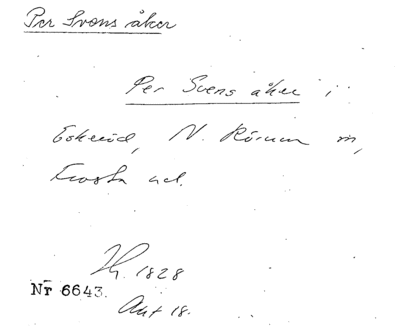 Per Svens åker
Per Svens åker i
Eskeröd, N. Rörum sn,
Frosta hd.
Lh. 1828
Nr 6643.
Akt 18.